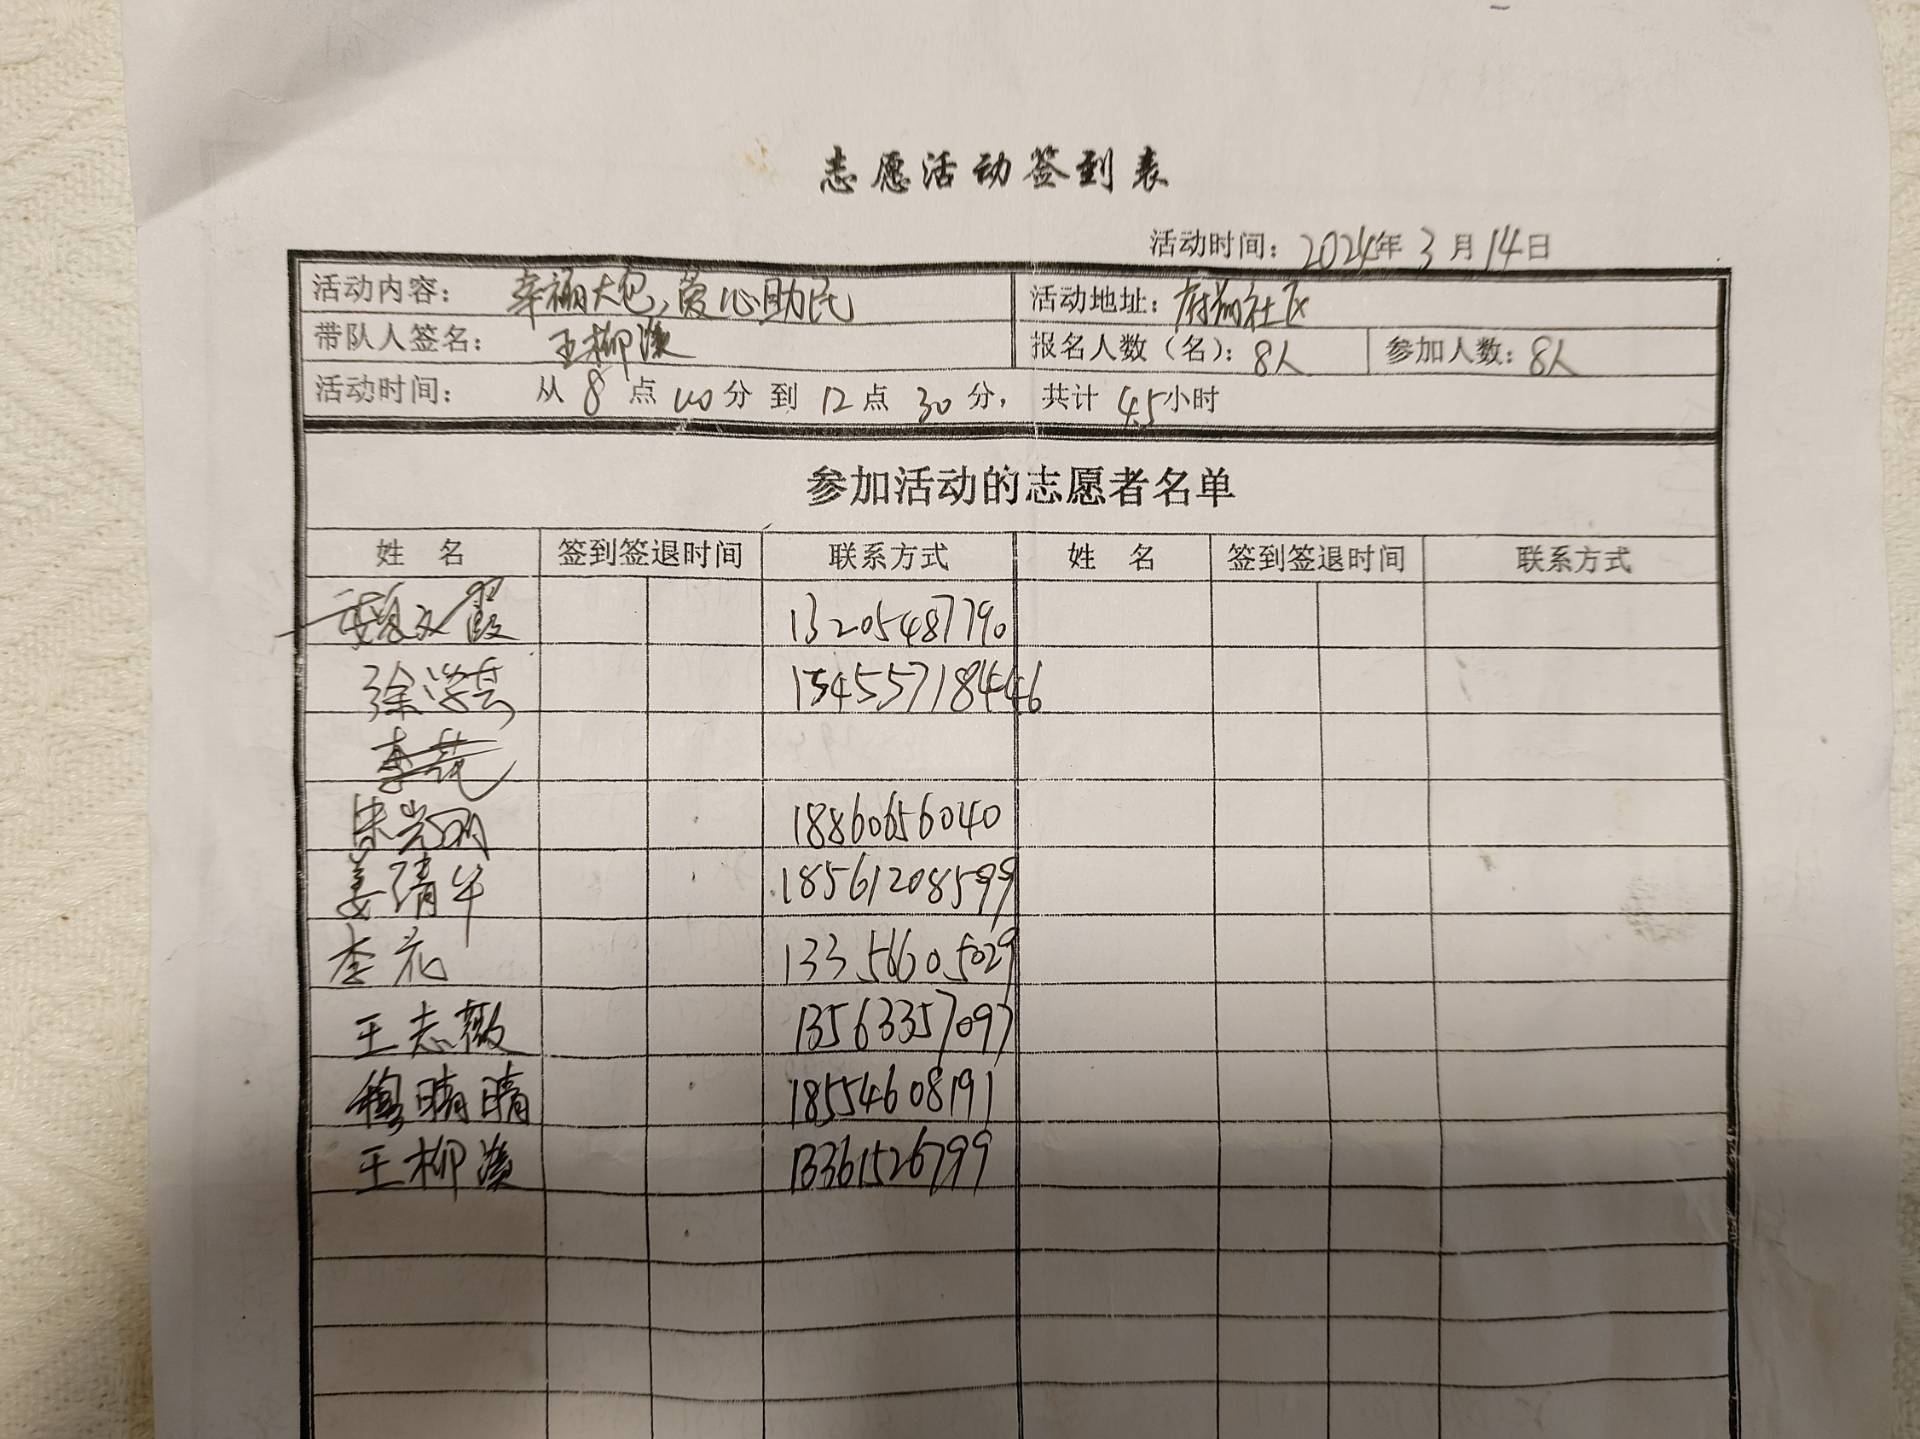 志愿活动签到表
活动时间：2024年3月14日
活动内容：幸福大包，爱心助民 活动地址：府前社区
带队人签名：王柳溪 报名人数（名）：8人 参加人数：8人
活动时间： 从8点00分到12点30分， 共计4.5小时
参加活动的志愿者名单
姓 名 签到签退时间 联系方式 姓 名 签到签退时间 联系方式
魏文霞 13205487790
徐 15455718446
李花
朱光明 18860656040
姜清华 18561208599
李花 13356605029
王志薇 13563357097
穆晴晴 18554608191
王柳溪 13361526799